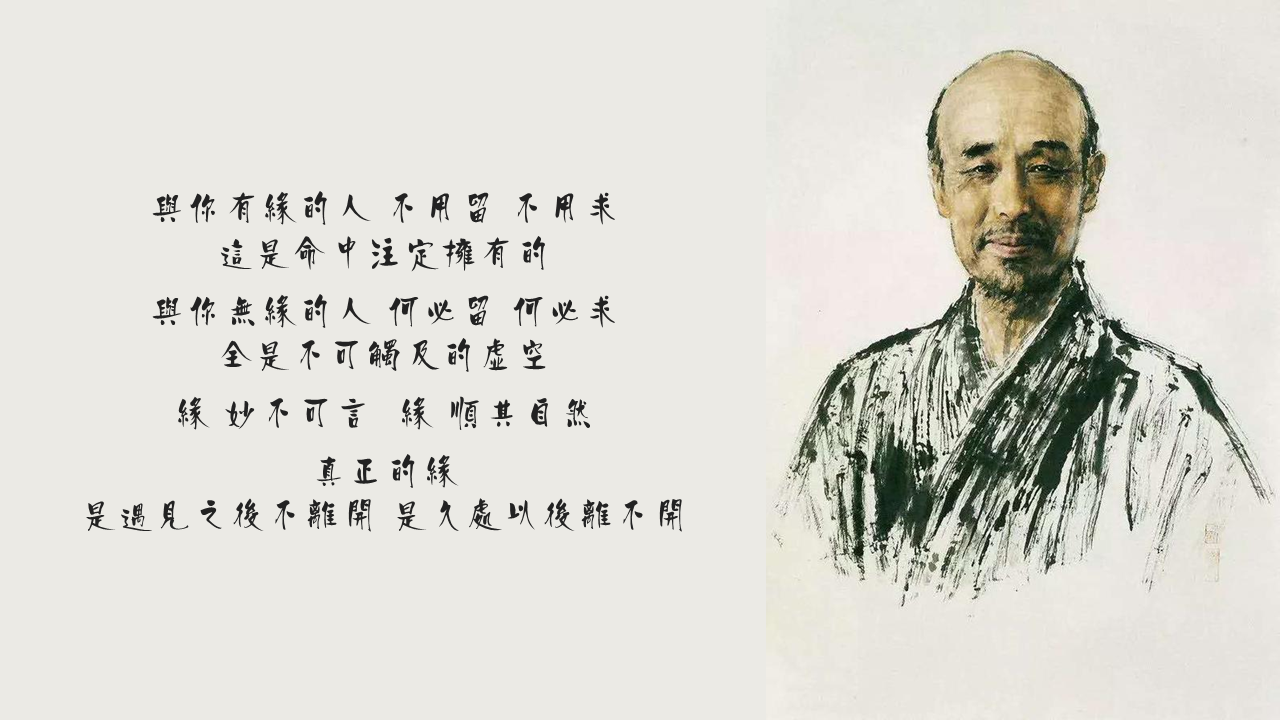 與你有緣的人 不用留 不用求
這是命中注定擁有的
與你無緣的人 何必留 何必求
全是不可觸及的虛空
緣 妙不可言 緣 順其自然
真正的緣
是遇見之後不離開 是久處以後離不開